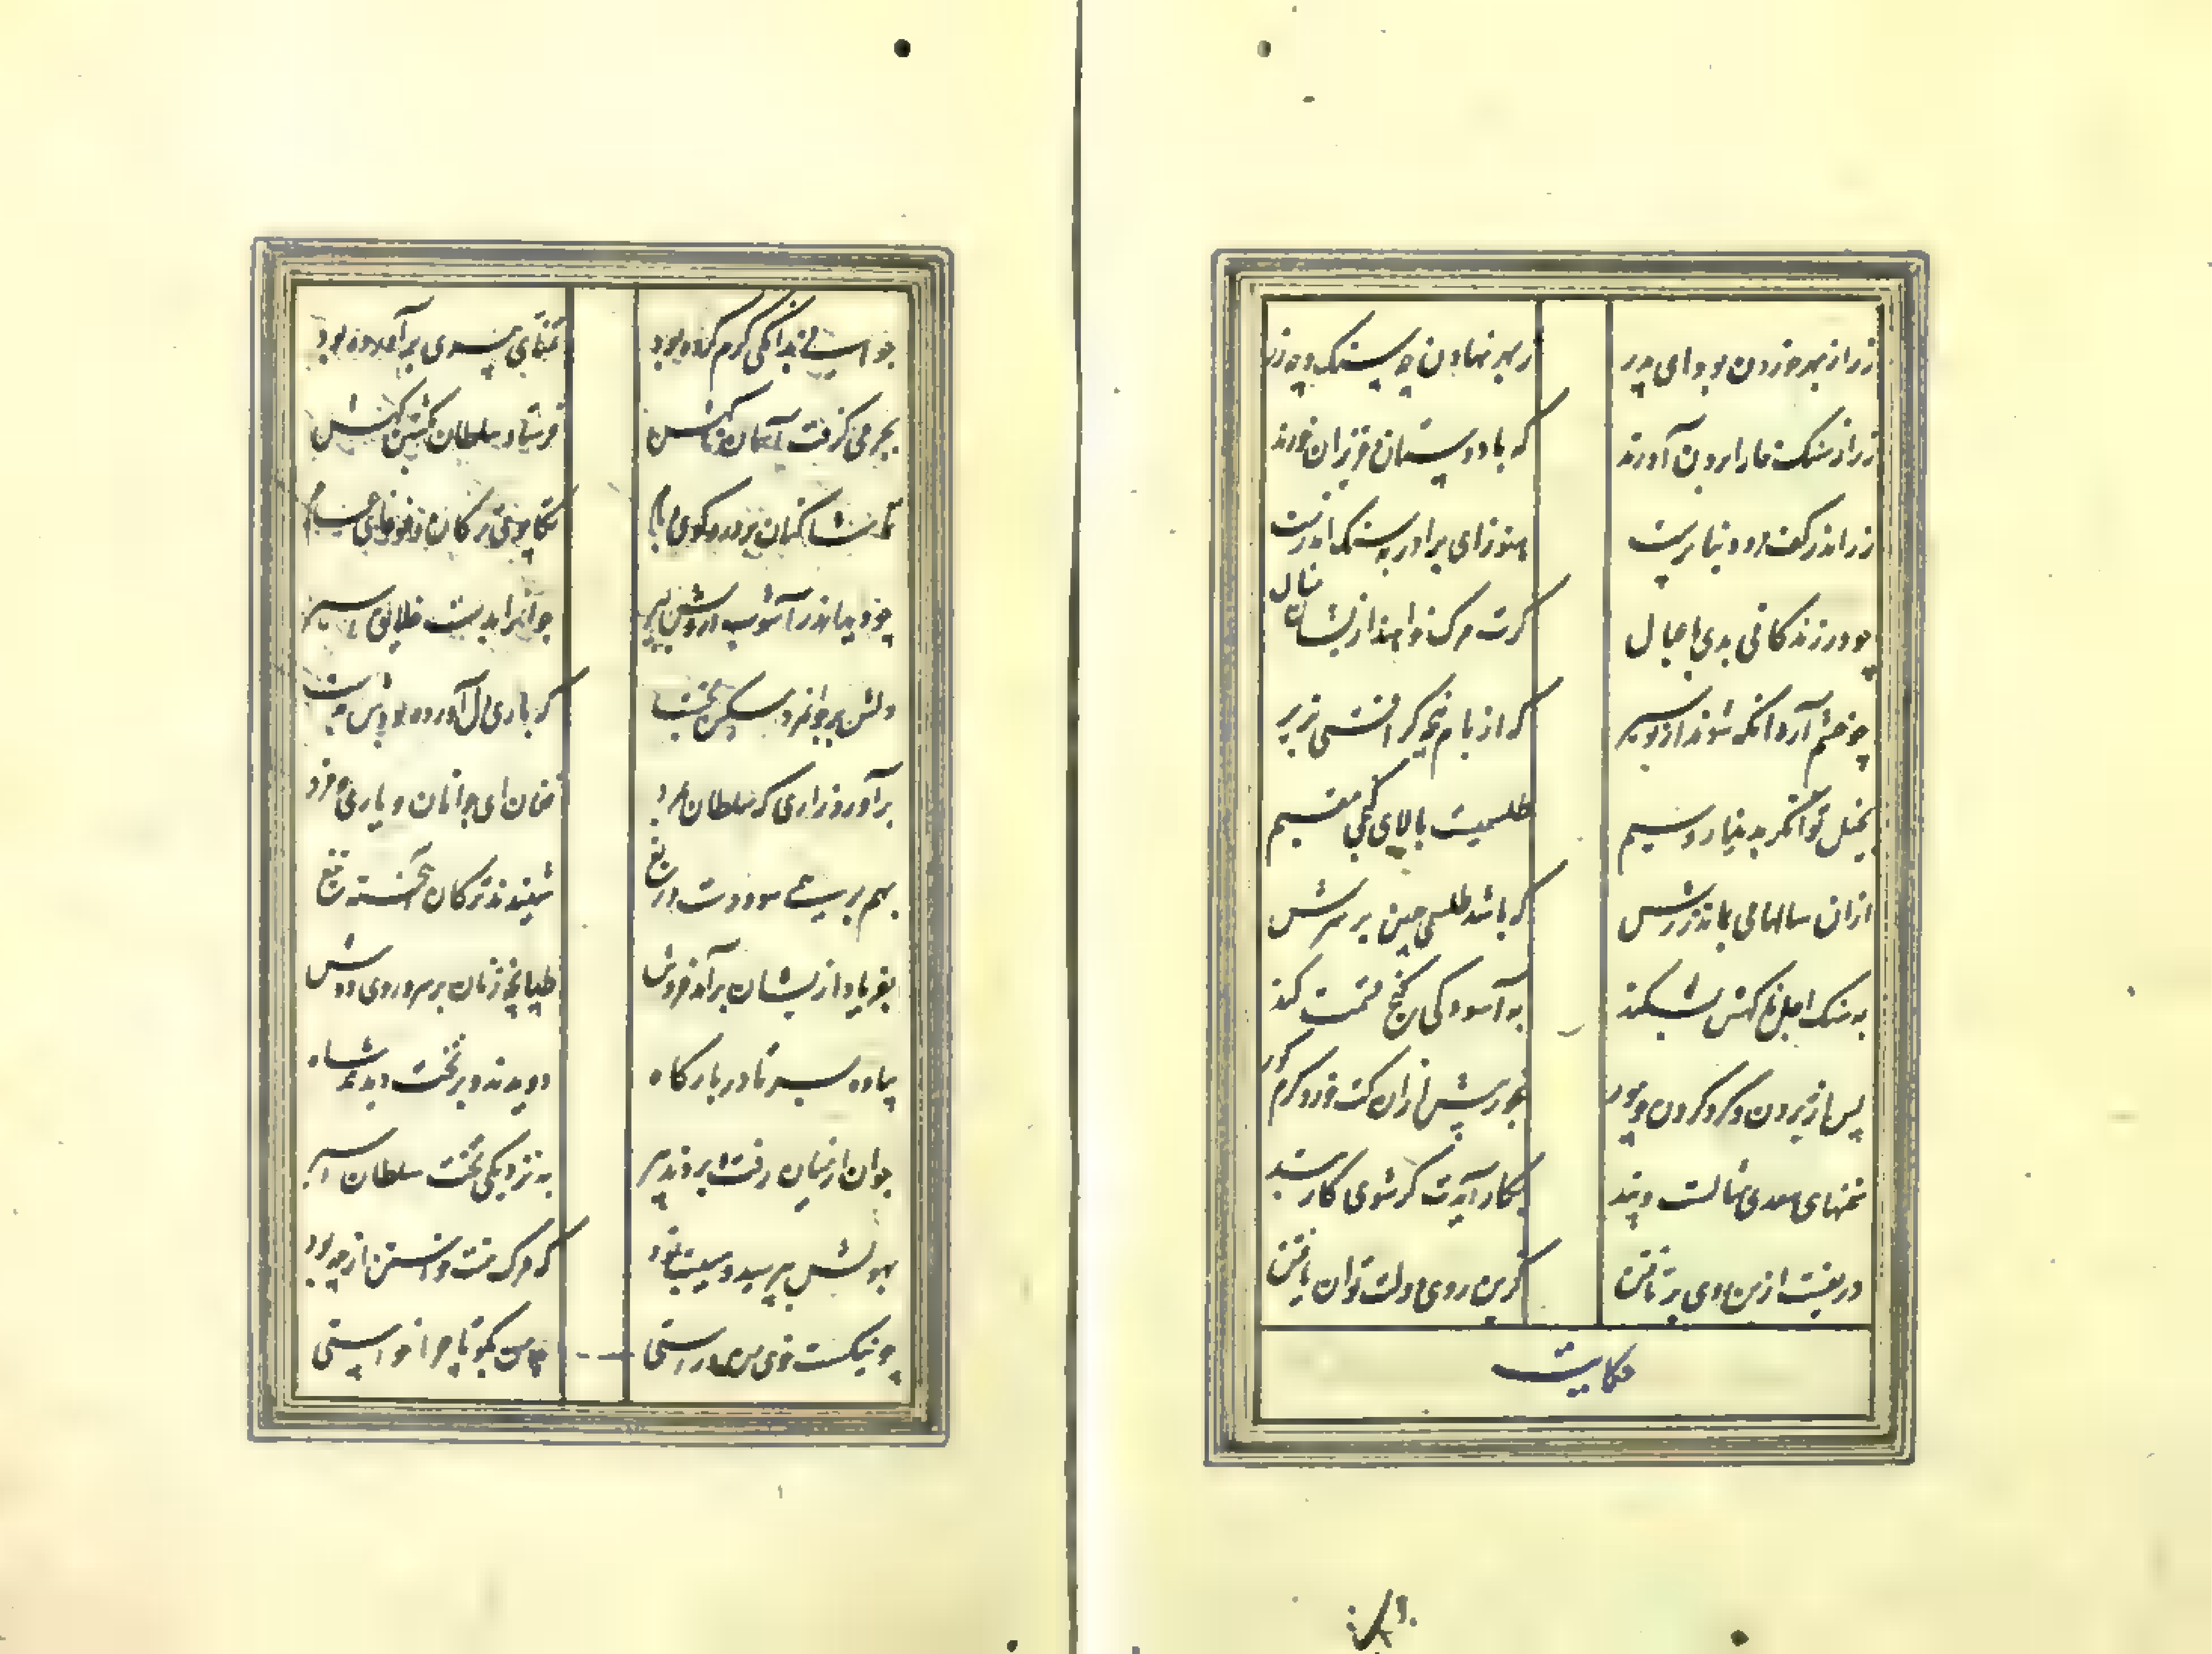 زر از بهر خوردن بود ای پدر ز بهر نهادن چه سنگ و چه زر
زر از سنگ خارا برون آورند که با دوستان و عزیزان خورند
زر اندر کف مرد دنیا پرست هنوز ای برادر به سنگ اندرست
چو در زندگانی بدی با عیال گرت مرگ خواهند ازیشان منال
چو خشم آرد آنگه شوند از تو سیر که از بام پنجه گز افتی بزیر
بخیل توانگر به دینار و سیم طلسمیست بالای گنجی مقیم
ازان سالها می بماند زرش که باشد طلسمی چنین بر سرش
به سنگ اجل ناگهش بشکنند به آسودگی گنج قسمت کنند
پس از بردن و گرد کردن چو مور بخور پیش ازان کت خورد کرم گور
سخنهای سعدی مثالست و پند بکار آیدت گر شوی کاربند
دریغست ازین روی برتافتن کزین روی دولت توان یافتن
حکایت
جوانی بدانگی کرم کرده بود تمنای پیری برآورده بود
بجرمی گرفت آسمان ناگهش فرستاد سلطان بکشتن گهش
تماشا کنان بر در و کوی و بام تکاپوی ترکان و غوغای عام
چو دید اندر آشوب درویش پیر جوانرا بدست خلایق اسیر
دلش بر جوانمرد مسکین بخست که باری دل آورده بودش بدست
برآورد زاری که سلطان بمرد جهان ای جوانان و یاری ببرد
بهم بر همی سود دست دریغ شنیدند ترکان آهخته تیغ
بفریاد ازیشان برآمد خروش طپانچه زنان بر سر و روی و دوش
پیاده بسر تا در بارگاه دویدند و بر تخت دیدند شاه
جوان از میان رفت و بردند پیر به نزدیکی تخت سلطان اسیر
بهولش بپرسید و هیبت نمود که مرگ منت خواستن از چه بود
چو نیکست خوی من و راستی بد من بگو تا چرا خواستی